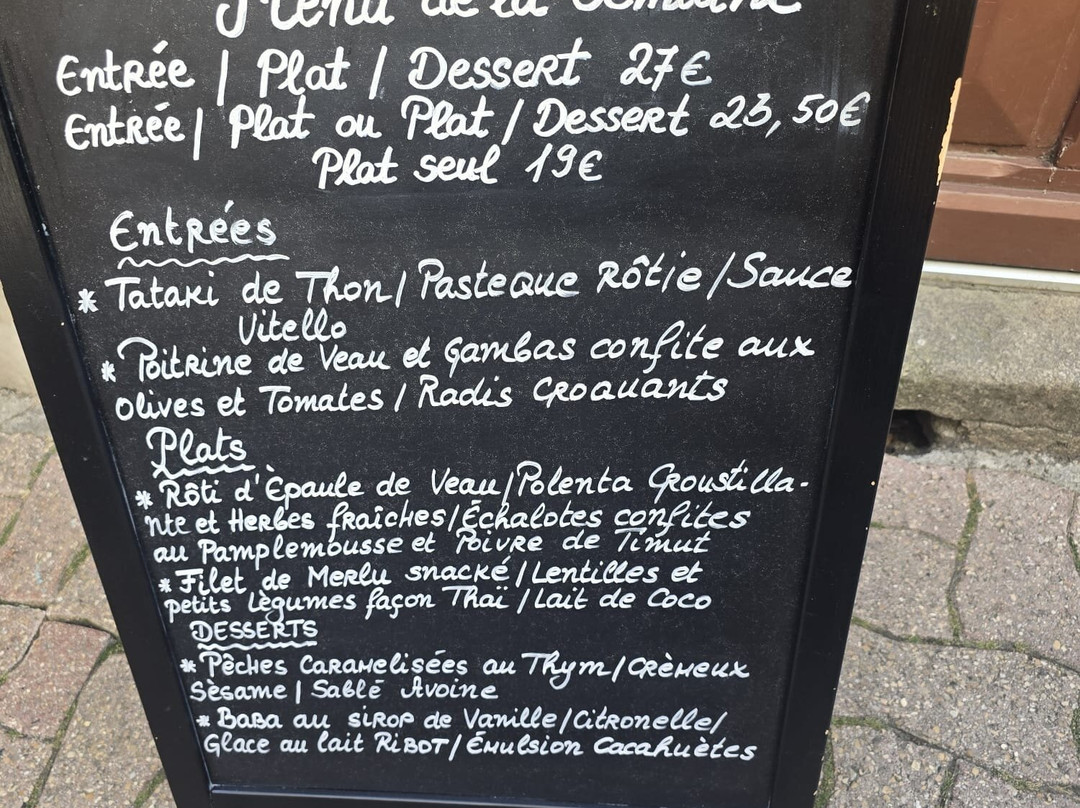 Menu de la Semaine
Entrée / Plat / Dessert 27€
Entrée / Plat ou Plat / Dessert 23,50€
Plat seul 19€
Entrées
* Tataki de Thon / Pasteque Rôtie / Sauce
Vitello
* Poitrine de Veau et Gambas confite aux
Olives et Tomates / Radis Croquants
Plats
* Rôti d'Épaule de Veau / Polenta Croustilla-
nte et Herbes fraîches / Échalotes confites
au Pamplemousse et Poivre de Timut
* Filet de Merlu snacké / Lentilles et
petits Légumes façon Thaï / Lait de Coco
DESSERTS
* Pêches Caramelisées au Thym / Crèmeux
Sèsame / Sablé Avoine
* Baba au sirop de Vanille / Citronelle /
Glace au lait Ribot / Émulsion Cacahuètes